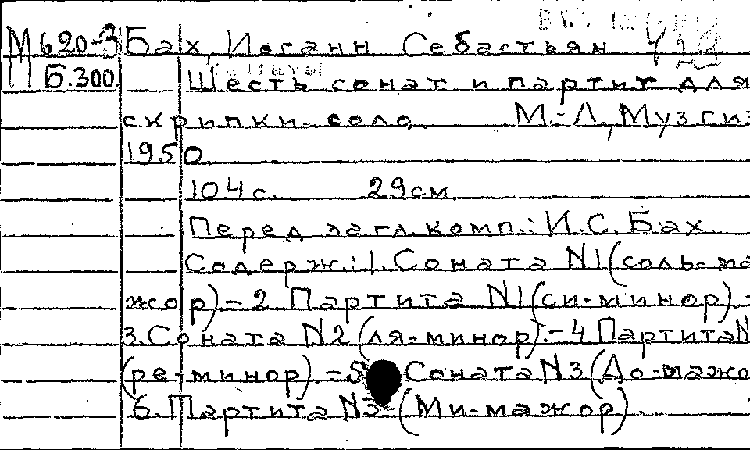 М620-3 Бах, Иоганн Себастьян
Б.300 Шесть сонат и партит для
скрипки-соло М.-Л, Музгиз
1950
104 с. 29 см
Перед загл. комп.: И.С. Бах
Содерж.: 1. Соната N1 (соль-ма
жор) – 2 Партита N1 (си-минор) –
3. Соната N2 (ля-минор). – 4 Партита N
(ре-минор). – 5 Соната N3 (До-мажо
6. Партита N3 (Ми-мажор)